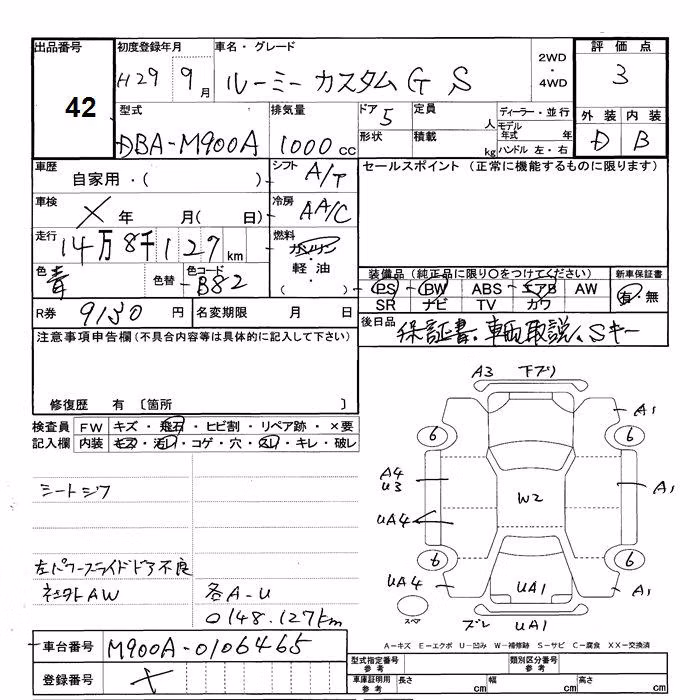 出品番号
42
初度登録年月
H29 9月
車名・グレード
ルーミー カスタムG S
2WD
・
4WD
評価点
3
外装 内装
D B
型式
DBA-M900A
排気量
1000cc
ドア 5
形状
定員 人
積載 kg
ディーラー・並行
モデル年式 年
ハンドル 左・右
車歴
自家用・( )
シフト
A/T
車検
× 年 月( 日)
冷房
AA/C
走行
14万8千127km
燃料
ガソリン
・
軽油
・
( )
色
青
色替
色コード
B82
R券 9130円
名変期限 月 日
セールスポイント (正常に機能するものに限ります)
装備品(純正品に限り○をつけてください)
PS PW ABS エアB AW
SR ナビ TV カワ
新車保証書
有・無
後日品 保証書、車両取説、Sキー
注意事項申告欄(不具合内容等は具体的に記入して下さい)
修復歴 有 〔箇所 〕
検査員
記入欄
FW キズ・飛石・ヒビ割・リペア跡・×要
内装 キズ・汚レ・コゲ・穴・スレ・キレ・破レ
シートシワ
左パワースライドドア不良
社外AW
各A-U
0148.127km
A3 下ブリ
A1
6
6
A4
U3
W2
A1
UA4
6
6
UA4
UA1
A1
スペア
ズレ UA1
A-キズ E-エクボ U-凹み W-補修跡 S-サビ C-腐食 XX-交換済
車台番号 M900A-0106465
登録番号 ×
型式指定番号
参考
類別区分番号
参考
車庫証明用
参考
長さ cm
幅 cm
高さ cm